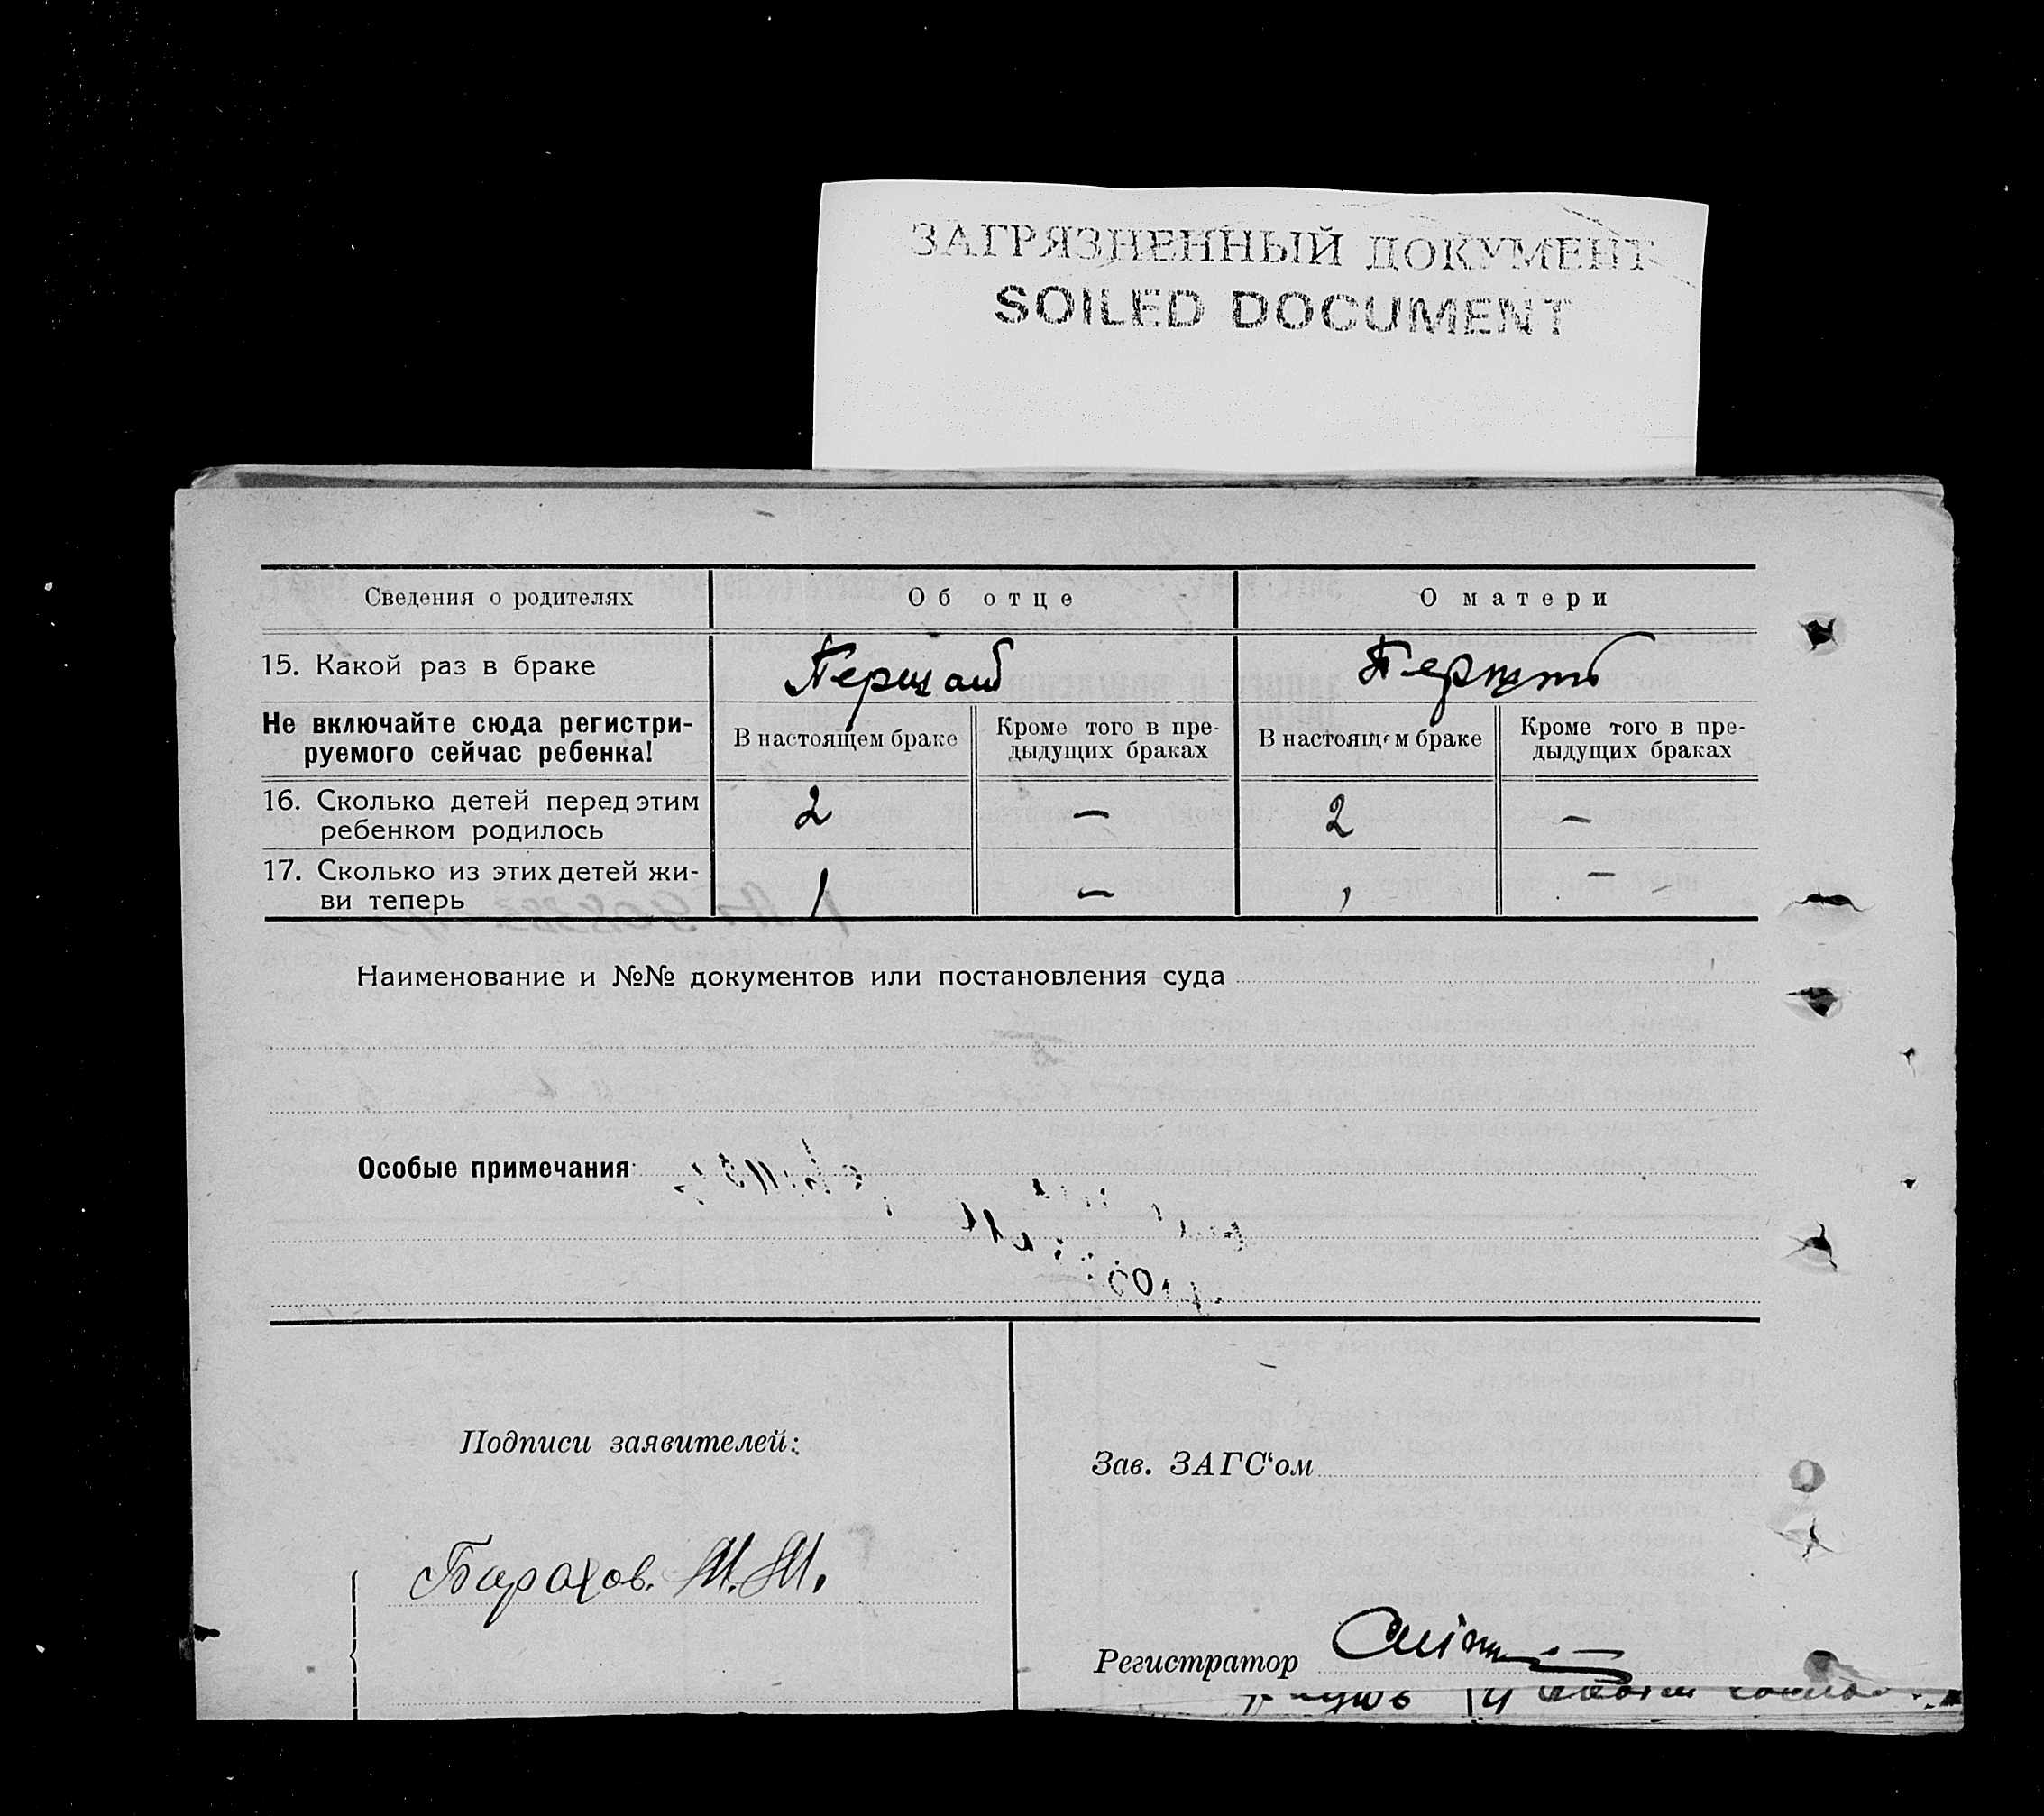 ЗАГРЯЗНЕННЫЙ ДОКУМЕНТ
SOILED DOCUMENT
Сведения о родителях Об отце О матери
15. Какой раз в браке
Не включайте сюда регистри-
руемого сейчас ребенка!
В настоящем браке
Кроме того в пре-
дыдущих браках
В настоящем браке
Кроме того в пре-
дыдущих браках
16. Сколько детей перед этим
ребенком родилось
2 — 2 —
17. Сколько из этих детей жи-
ви теперь
1 — —
Наименование и №№ документов или постановления суда
Особые примечания
Подписи заявителей:
Зав. ЗАГС‘ом
Регистратор